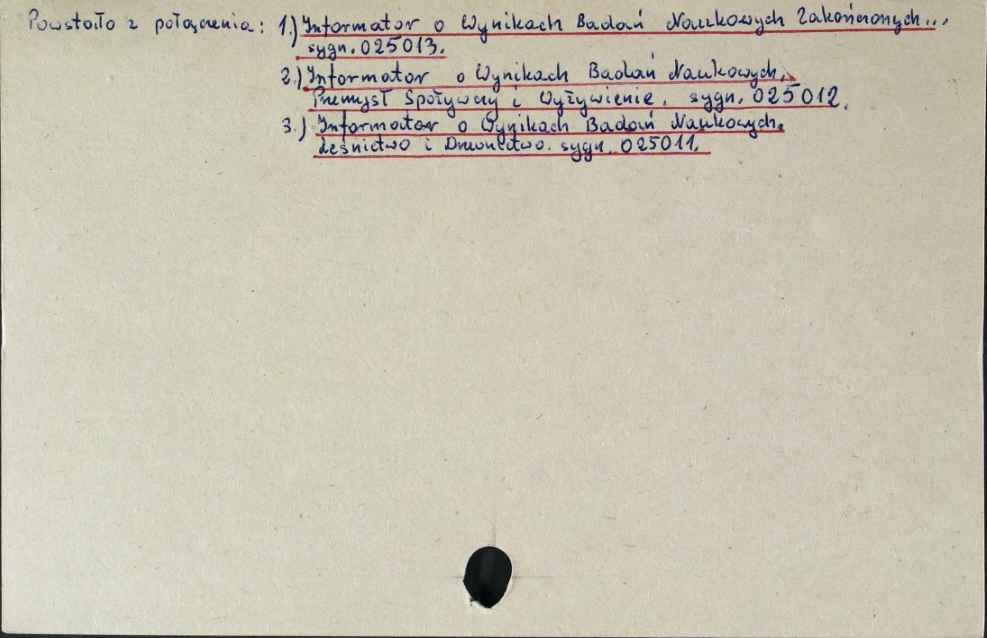 Powstało z połączenia: 1.) Informator o Wynikach Badań Naukowych Zakończonych...
sygn. 025013.
2.) Informator o Wynikach Badań Naukowych.
Przemysł Spożywczy i Wyżywienie. sygn. 025012.
3.) Informator o Wynikach Badań Naukowych.
Leśnictwo i Drzewnictwo. sygn. 025011.